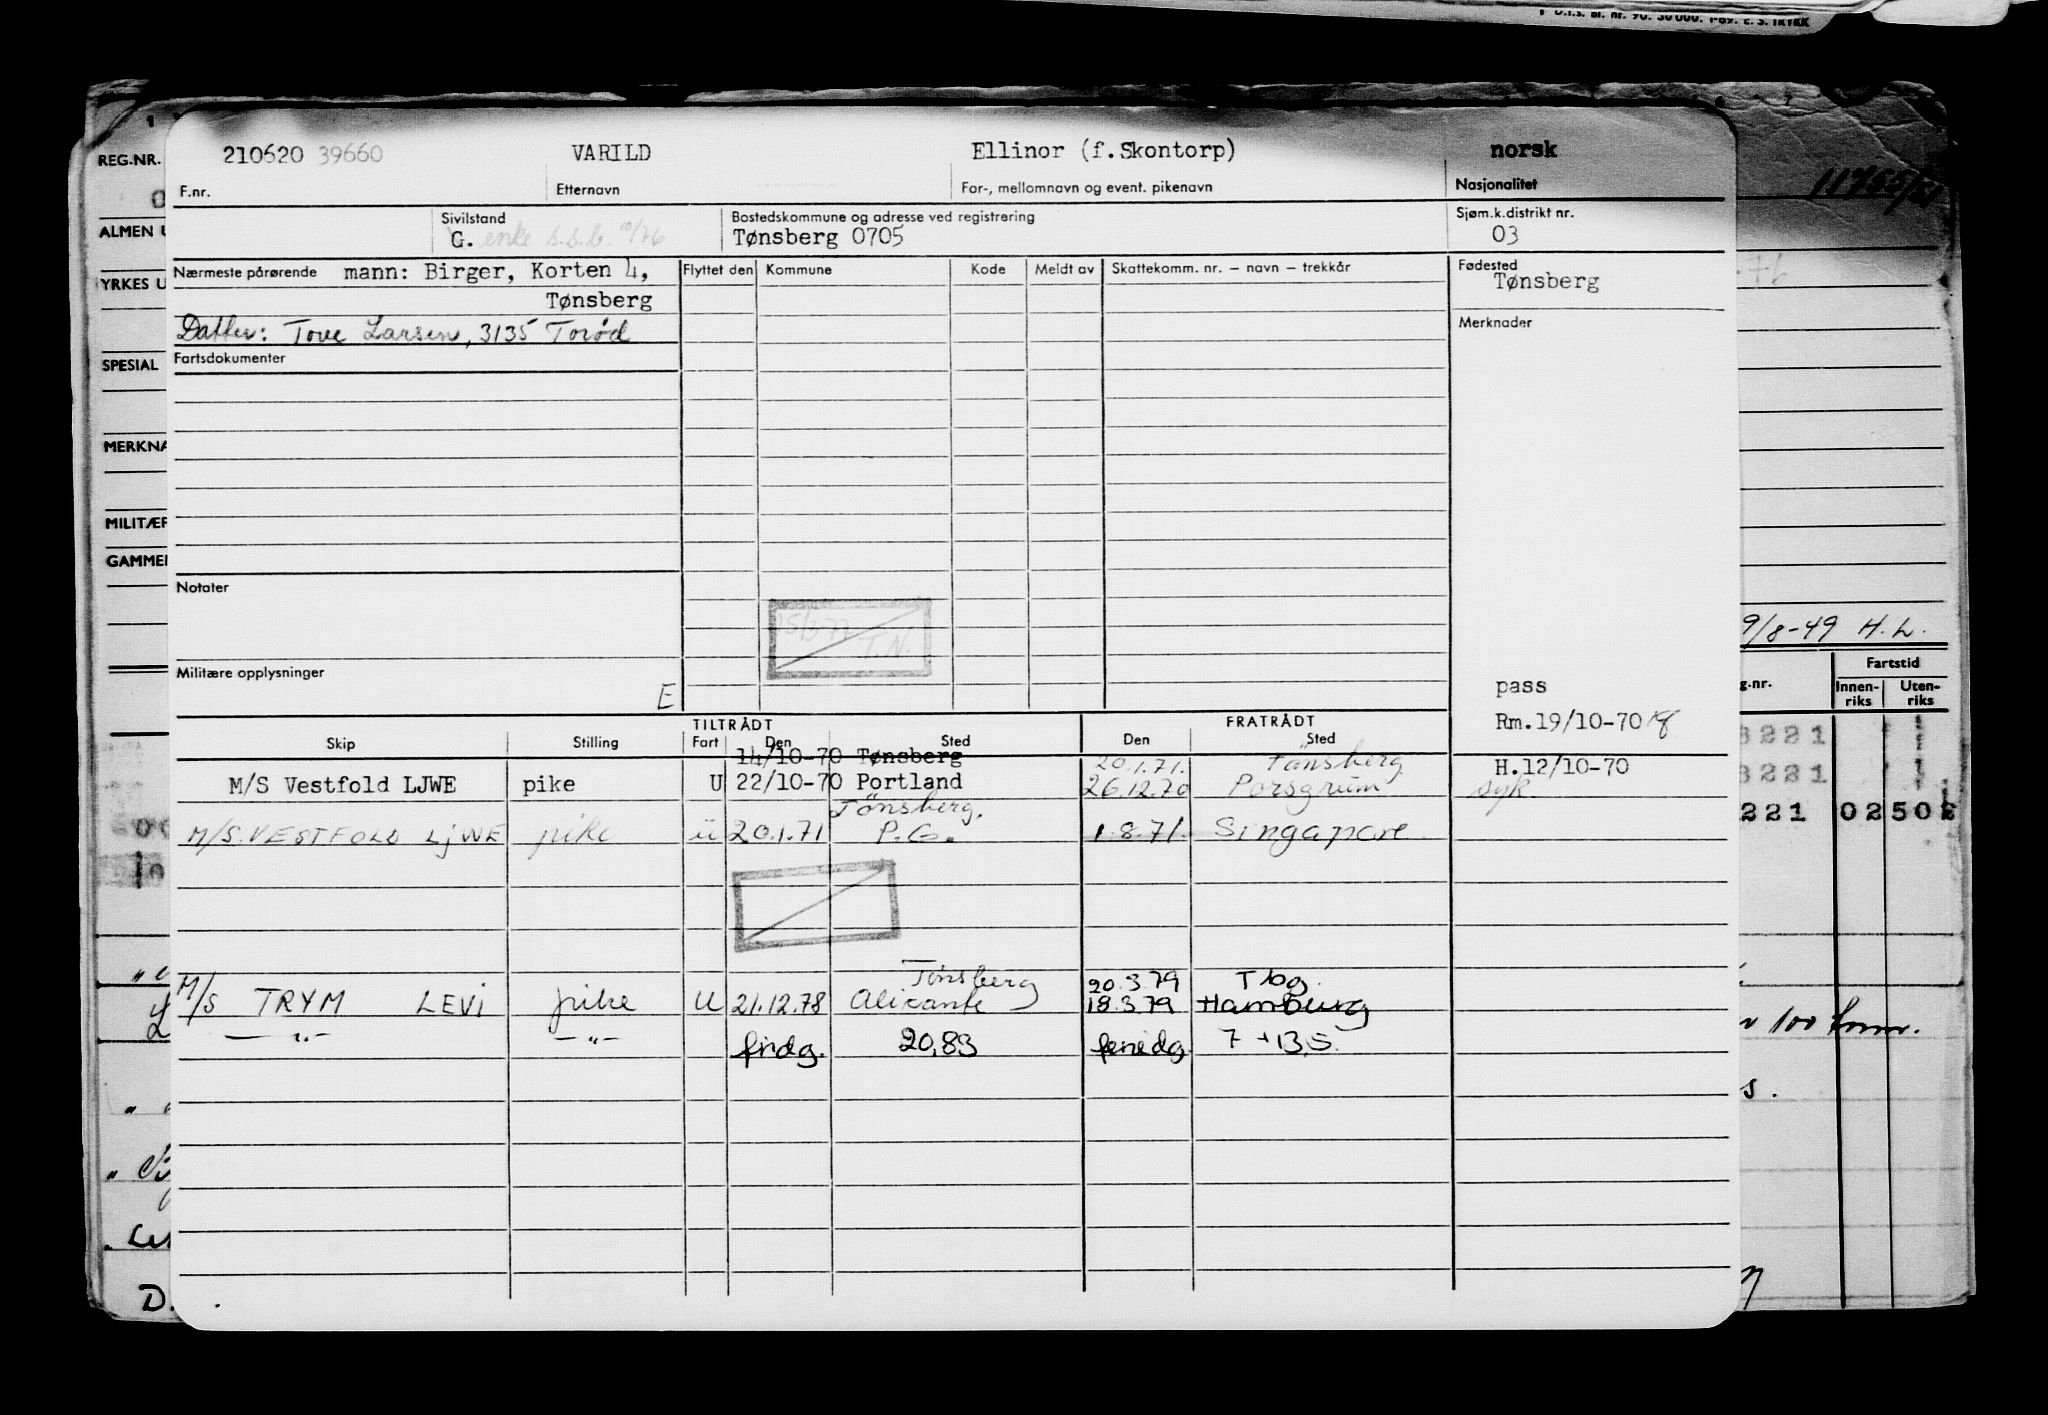 D.I.S. bl. nr. 90. 50 000. 1-69. E. S. TRYKK
REG.NR.
210620 39660 VARILD Ellinor (f.Skontorp) norsk
F.nr. Etternavn For-, mellomnavn og event. pikenavn Nasjonalitet
ALMEN U
Sivilstand Bostedskommune og adresse ved registrering Sjøm.k.distrikt nr.
G. enke s.s.b. 10/76 Tønsberg 0705 03
Nærmeste pårørende mann: Birger, Korten 4, Flyttet den Kommune Kode Meldt av Skattekomm. nr. – navn – trekkår Fødested
YRKES U
Tønsberg Tønsberg
Datter: Tove Larsen, 3135 Torød Merknader
SPESIAL Fartsdokumenter
MERKNA
MILITÆR
GAMMEL
Notater
15/3 77 T.N.
9/8-49 H.L.
Militære opplysninger
E
pass
Fartstid
g.nr. Innen-riks Uten-riks
TILTRÅDT FRATRÅDT Rm.19/10-70
Skip Stilling Fart Den Sted Den Sted
14/10-70 Tønsberg 20.1.71. Tönsberg H.12/10-70
M/S Vestfold LJWE pike U 22/10-70 Portland 26.12.70 Porsgrunn syk
Tönsberg.
M/S. VESTFOLD LjWE pike ü 20.1.71 P.G. 1.8.71. Singapore
3221
3221
221 02502
Tønsberg 20.3.79 Tbg.
M/S TRYM LEVI pike U 21.12.78 Alicante 18.3.79 Hamburg
— " — — " — fridg. 20,83 feriedg. 7 + 13,5.
100
s.
D.